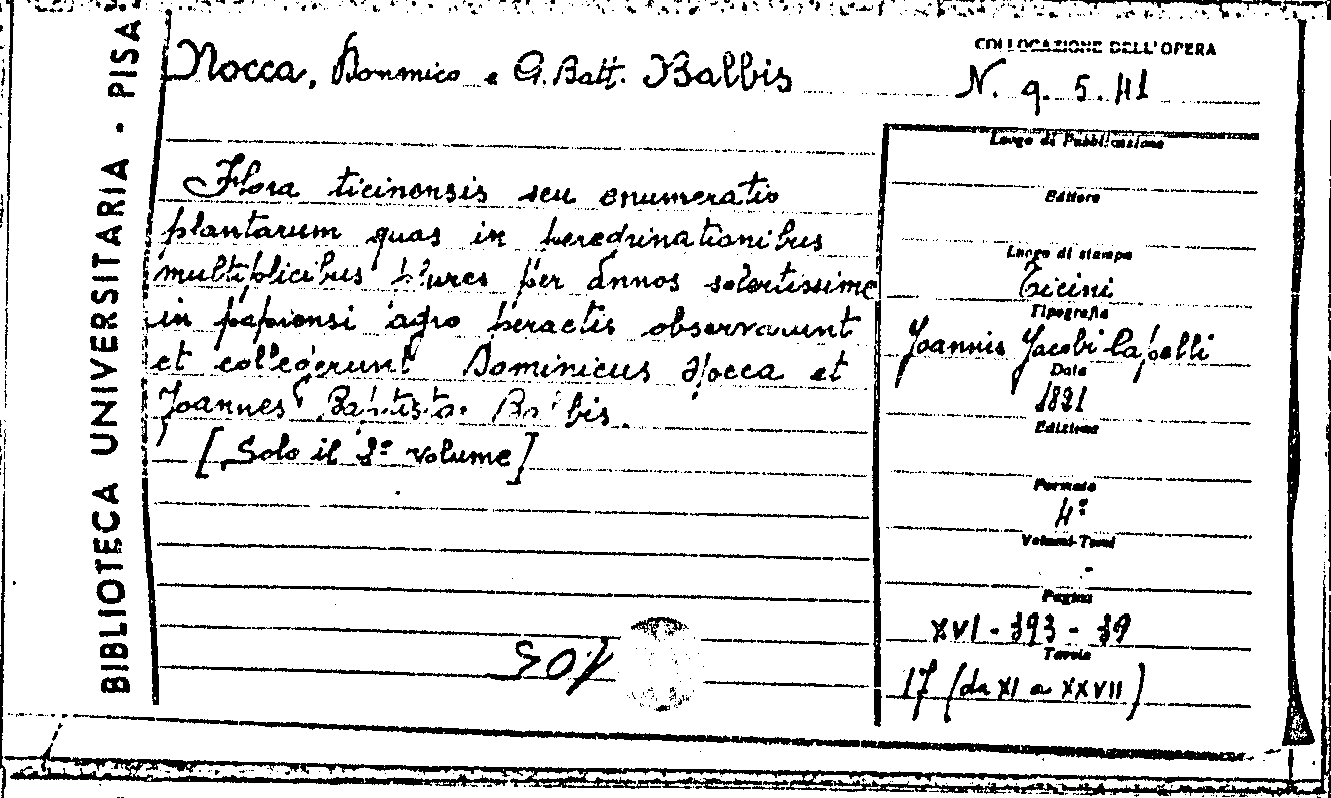 BIBLIOTECA UNIVERSITARIA - PISA
Nocca, Domenico e G. Batt. Balbis
COLLOCAZIONE DELL'OPERA
N. q. 5. 41
Flora ticinensis seu enumeratio
plantarum quas in peregrinationibus
multiplicibus plures per annos solertissime
in papiensi agro peractis observarunt
et collegerunt Dominicus Nocca et
Joannes Baptista Balbis.
[Solo il 2º volume]
Luogo di Pubblicazione
Editore
Luogo di stampa
Ticini
Tipografia
Joannis Jacobi Capelli
Data
1821
Edizione
Formato
4º
Volumi-Tomi
Pagine
XVI - 393 - 39
Tavole
17 (da XI a XXVII)